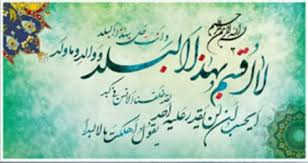 بسم الله الرحمن الرحیم
لا اقسم بهذا البلد
وانت حل بهذا البلد
ووالد وما ولد
لقد خلقنا الانسن فی کبد
ایحسب ان لن یقدر علیه احد
یقول اهلکت مالا لبدا